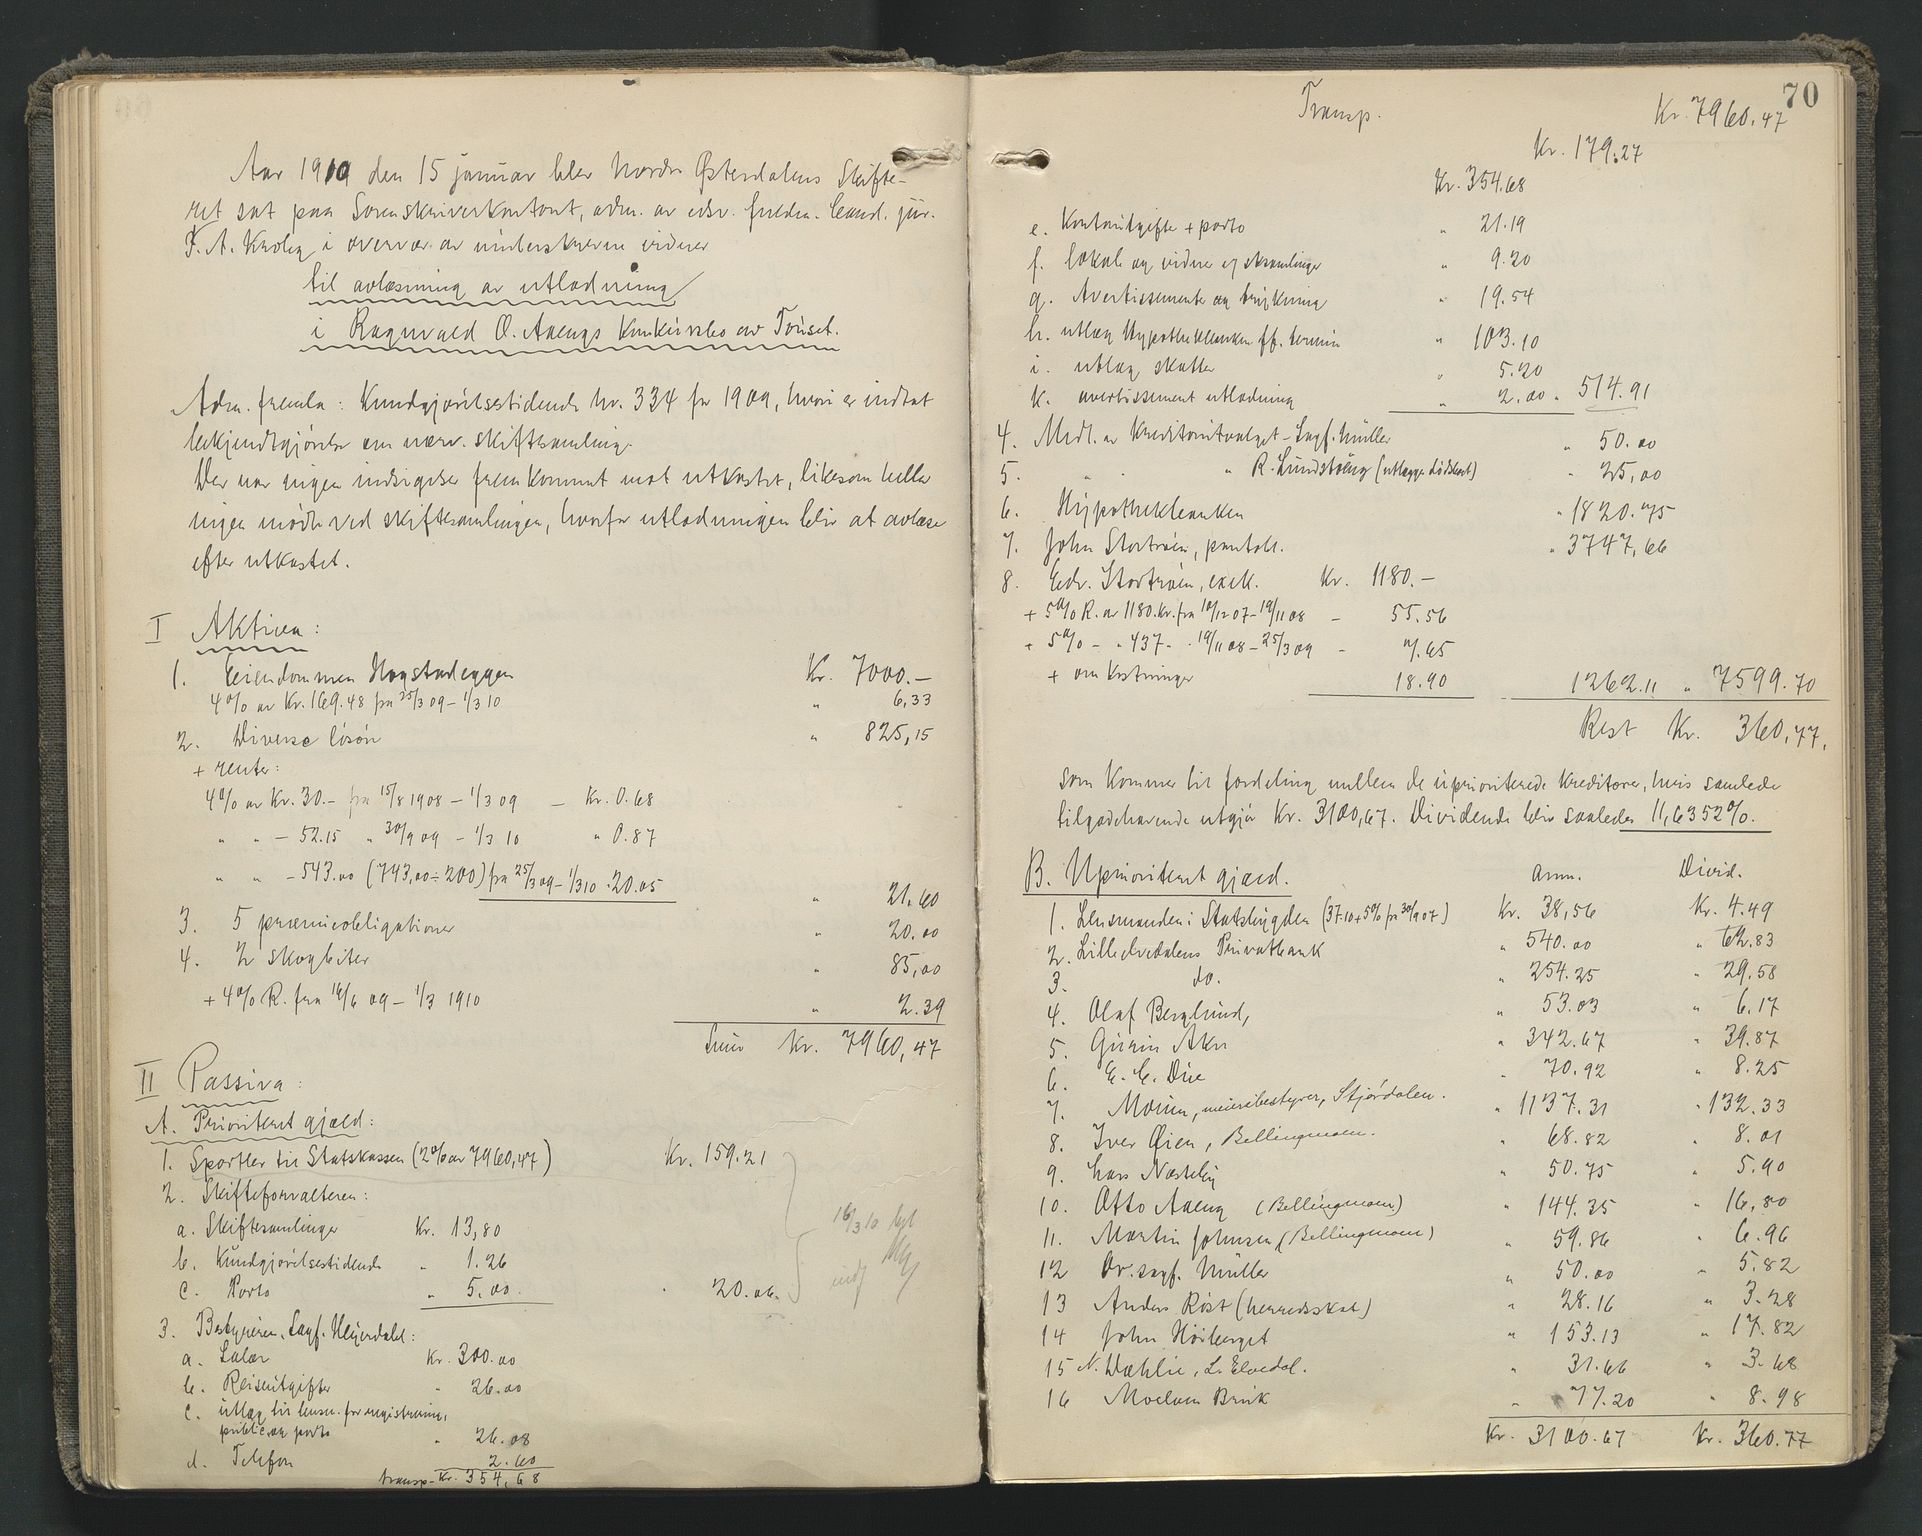 Aar 1910 den 15 januar blev Nordre Østerdalens Skifte-
ret sat paa Sorenskriverkontoret, adm. av edsv. fuldm. Cand. jur.
F. A. Krog i overvær av underskrevne vidner
til avlæsning av utlodning
i Ragnvald O. Aaengs Konkursbo av Tönset.
Adm. fremla: Kundgjörelsestidende Nr. 334 for 1909, hvori er indtat
bekjendtgjörelse om nærv. skiftesamling.
Der var ingen indsigelser fremkommet mot utkastet, likesom heller
ingen mödte ved skiftesamlingen, hvorfor utlodningen blir at avlæse
efter utkastet.
I Aktiva:
1. Eiendommen Haystadeggen Kr. 7000.-
4% av Kr. 169.48 fra 25/3 09 - 1/3 10 " 6,33
2. Diverse lösöre " 825,15
+ renter:
4% av Kr. 30.- fra 15/8 1908 - 1/3 09 - Kr. 0.68
" " - 52.15 " 30/9 09 - 1/3 10 " 0.87
" " - 543.00 (743,00 ÷ 200) fra 25/3 09 - 1/3 10 - 20.05
" 21.60
3. 5 præmieobligationer " 20.00
4. 2 skogteiter " 85,00
+ 4% R. fra 16/6 09 - 1/3 1910 " 2.39
Sum Kr. 7960,47
II Passiva:
A. Prioritert gjæld:
1. Sportler til Statskassen (2% av 7960,47) Kr. 159.21
2. Skifteforvalteren:
a. Skiftesamlinger Kr. 13,80
b. Kundgjörelsestidende " 1.26
c. Porto " 5.00 " 20.06
16/3 10
3. Bestyreren, Sagf. Heyerdahl:
a. Salær Kr. 300.00
b. Reiseutgifter " 26.00
c. utlæg til lensm. for registrering,
public. og porto " 26.08
d. Telefon 2.60
transp- Kr. 354,68
70
Transp. Kr. 7960.47
Kr. 179.27
Kr. 354.68
e. Kontorutgifter + porto " 21.19
f. lokale og vidner og sksamlinger " 9.20
g. Avertissementer og trykning " 19.54
h. utlæg Hypothekbanken ff. termin " 103.10
i. utlæg skatter " 5.20
k. avertissement utlodning " 2.00 " 514.91
4. Medl. av Kreditorutvalget - Sagf. Müller " 50.00
5. " " R. Lundstöeng (utlægges Dödsboet) " 25,00
6. Hypothekbanken " 1820.75
7. John Stortröen, pantobl. " 3747,66
8. Edv. Stortröen, exek. Kr. 1180.-
+ 5% R. av 1180.Kr. fra 10/12 07 - 19/11 08 - 55.56
+ 5% - " 437 - 19/11 08 - 25/3 09 - 7.65
+ omkostninger 18.90 1262.11 " 7599.70
Rest Kr. 360,77.
som kommer til fordeling mellem de upriorterede kreditorer, hvis samlede
tilgodehavende utgjör Kr. 3100,67. Dividende blir saaledes 11,6352%.
B. Uprioritert gjæld. Anm. Divid.
1. Lensmanden i Statsbygden (37.10 + 5% fra 30/9 07) Kr. 38,56 Kr. 4.49
2. Lilleelvedalens Privatbank " 540.00 " 62.83
3. do. " 254.25 " 29.58
4. Olaf Berglund, " 53.03 " 6.17
5. Gurin Akre " 342.67 " 39.87
6. E. E. Due " 70.92 " 8.25
7. Moum, meieribestyrer, Stjördalen. " 1137.31 " 132.33
8. Iver Öien, Bellingmoen. " 68.82 " 8.01
9. Lars Næsteby " 50.75 " 5.90
10. Otto Aaeng (Bellingmoen) " 144.35 " 16,80
11. Martin Johnsen (Bellingmoen) " 59.86 " 6.96
12 Or. sagf. Müller " 50.00 " 5.82
13 Anders Röst (herredsskat) " 28.16 " 3.28
14 John Höiberget " 153.13 " 17.82
15 N. Dæhlie, L. Elvedal. " 31.66 " 3.68
16 Moelven Brük " 77.20 " 8.98
Kr. 3100.67 Kr. 360.77